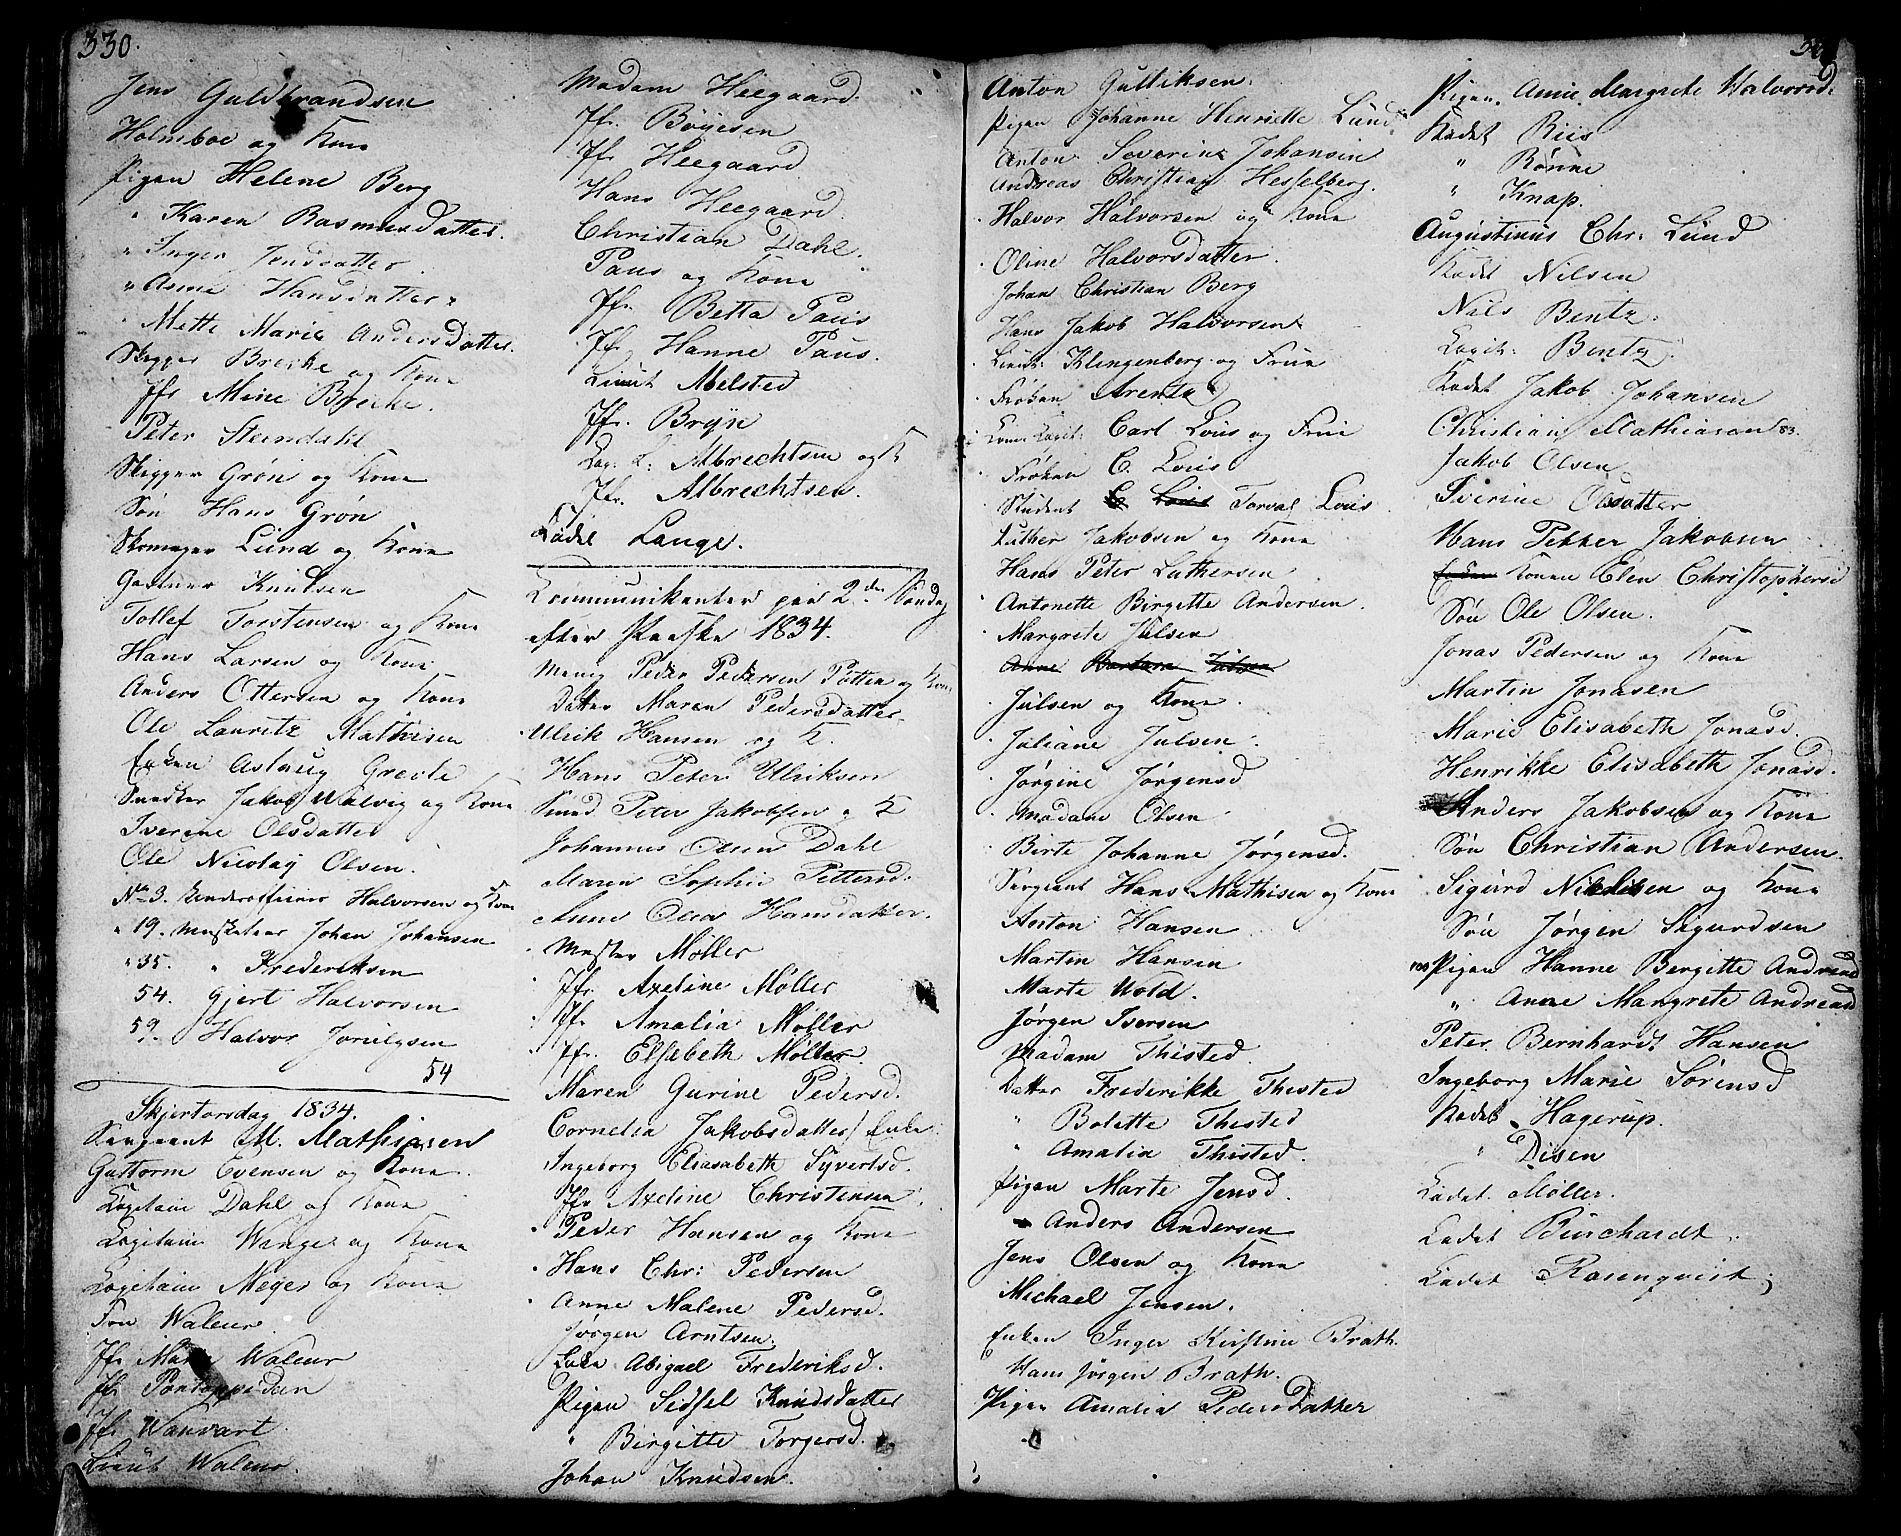 330.
Jens Guldbrandsen
Holmboe og Kone
Pigen Helene Berg
" Karen Rasmusdatter.
" Inger Jensdatter
" Anne Hansdatter
" Mette Marie Andersdatter.
Skipper Brecke og Kone
Jfr Mine Brecke.
Peter Steendahl
Skipper Grøn og Kone
Søn Hans Grøn
Skomager Lund og Kone
Gartner Knudsen
Tollef Torstensen og Kone
Hans Larsen og Kone
Anders Ottersen og Kone
Ole Lauritz Mathisen
Enken Aslaug Grevle
Snedker Jakob Walvig og Kone
Iverine Olsdatter
Ole Nicolay Olsen.
No 3. Underofficier Halvorsen og Kone
" 19. Musketeer Johan Johansen
" 35. " Frederiksen
54. Gjert Halvorsen
59. Halvor
54
Skjertorsdag 1834.
Sergeant M. Mathisen
Guttorm Evensen og Kone.
Capitain Dahl og Kone
Capitain Wange og Kone
Capitain Meyer og Kone
Fru Waleur
Jfr Waleur
Jfr Pontoppidan
Jfr
Lieut Waleur.
Madam Heegaard.
Jfr. Boyesen
Jfr Heegaard
Hans Heegaard.
Christian Dahl.
Paus og Kone
Jfr. Betta Paus
Jfr Hanne Paus.
Lieut Abelsted
Jfr. Bryn
Cap. L: Albrechtsen og K
Jfr. Albrechtsen.
Kadet Lange.
Communikanter paa 2den Søndag
efter Paaske 1834.
Menig Peder Pedersen Potten og Kone
Datter Maren Pedersdatter.
Ulrik Hansen og K.
Hans Peter Ulriksen
Smed Peter Jakobsen og K
Johannes Olsen Dahl
Maren Sophie Petersd.
Anne Olea Hansdatter.
Mester Møller
Jfr. Axeline Møller
Jfr. Amalia Møller
Jfr. Elsebeth Møller.
Maren Gurine Pedersd.
Cornelia Jakobsdatter / Enke
Ingeborg Eliasabeth Syvertsd.
Jfr Axeline Christensen
Peder Hansen og Kone
Hans Chr: Pedersen
Anne Malene Pedersd.
Jørgen Arntsen
Enke Abigael Frederiksd.
Pigen Sidsel Knudsdatter
" Birgitte Torgersd.
Johan Knudsen.
Anton Gulliksen.
Pigen Johanne Henriette Lund
Anton Severin Johansen
Andreas Christian Hesselberg.
Halvor Halvorsen og Kone
Oline Halvorsdatter.
Johan Christian Berg
Hans Jakob Halvorsen
Lieut: Klingenberg og Frue
Frøken Arentz
Capit: Carl Lous og Frue
Frøken C. Lous
Student Torval Lous
Luther Jakobsen og Kone
Hans Peter Luthersen
Antonette Birgitte Andersen.
Margrete Julsen
Anne Barbara Julsen
Julsen og Kone.
Juliane Julsen.
Jørgine Jørgensd
Madam Olsen
Birte Johanne Jørgensd.
Sergeant Hans Mathisen og Kone
Anton Hansen
Martin Hansen
Marte Wold.
Jørgen Iversen
Madam Thisted.
Datter Frederikke Thisted
" Bolette Thisted
" Amalia Thisted.
Pigen Marte Jensd.
Anders Andersen
Jens Olsen og Kone
Michael Jensen.
Enken Inger Kirstine Brath.
Hans Jørgen Brath.
Pigen Amalia Pedersdatter
Pigen. Anne Margrete Halvorsd.
Kadet Riis
" Rønne
" Knap.
Augustinus Chr: Lund
Kadet Nilsen
Nils Bentz.
Capit: Bentz
Kadet Jakob Johansen
Christian Mathiasen 83.
Jakob Olsen
Iverine Olsdatter
Hans Petter Jakobsen
Enken Konen Elen Christophersd
Søn Ole Olsen.
Jonas Pedersen og Kone
Martin Jonasen
Marie Elisabeth Jonasd.
Henrikke Elisabeth Jonasd.
Anders Jakobsen og Kone
Søn Christian Andersen.
Sigurd Nielsen og Kone
Søn Jørgen Sigurdsen
100 Pigen Hanne Bergitte Andreasd
" Anne Margrete Andreasd
Peter Bernhardt Hansen
Ingeborg Marie Sørensd
Kadet Hagerup.
" Disen
Cadet Møller.
Cadet Burchardt.
Cadet Rosenqvist